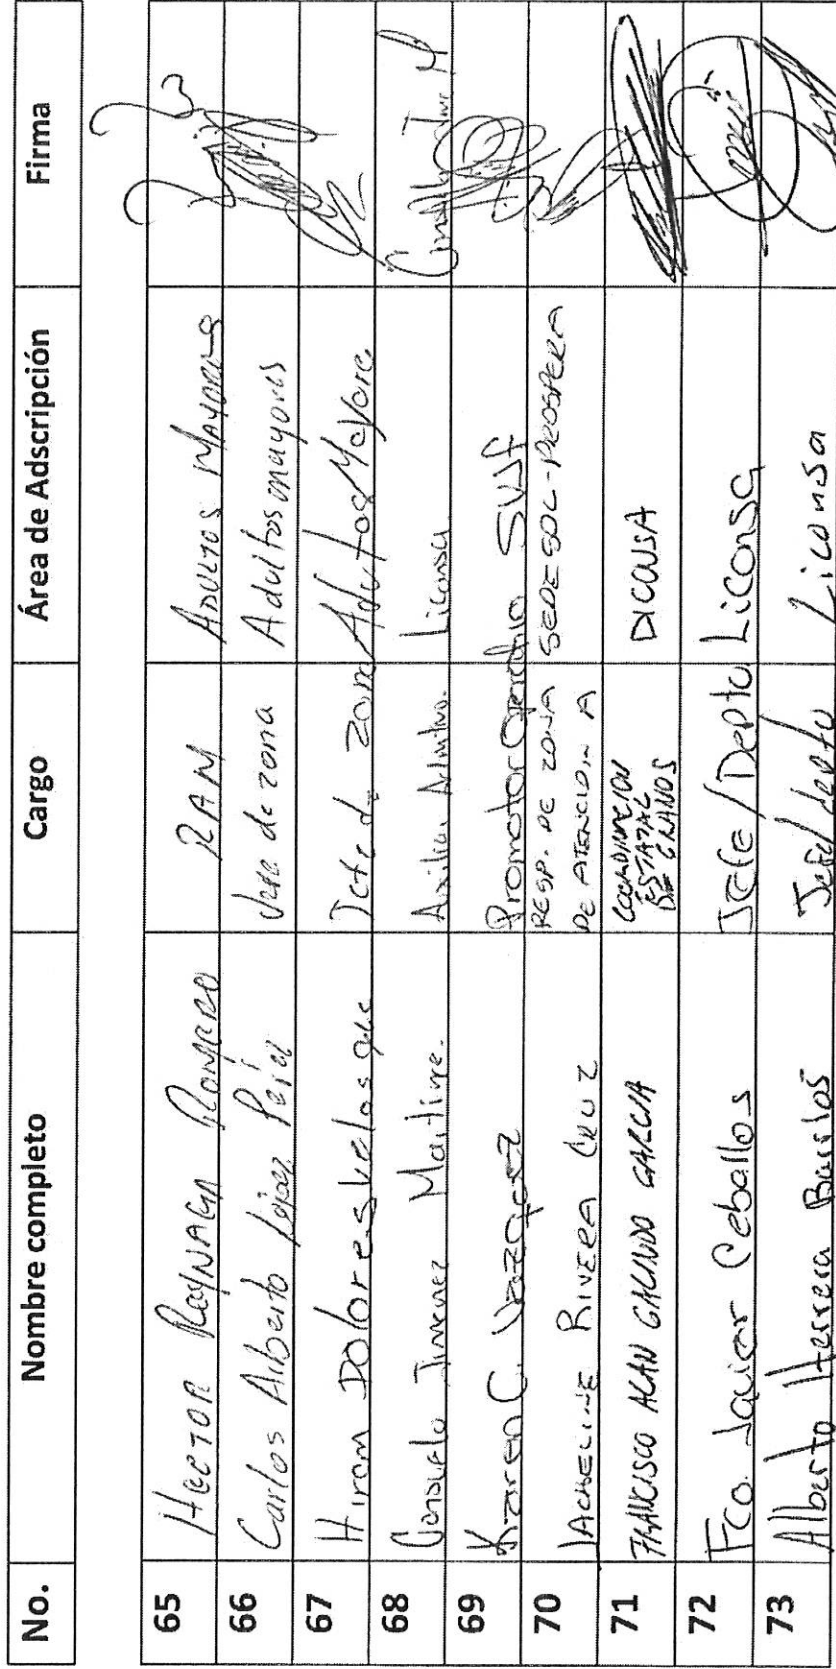 No. Nombre completo Cargo Área de Adscripción Firma
65 HECTOR REYNAGA ROMERO RAM ADULTOS MAYORES
66 Carlos Alberto López Pérez Jefe de zona Adultos mayores
67 Hiram Dolores Jefe d zona Adultos Mayore
68 Consuelo Jimenez Martine. Liconsa Consuelo
69 Karen C. Vazquez Promotor SVJF
70 JACKELINE RIVERA CRUZ RESP. DE ZONA DE ATENCION A SEDESOL-PROSPERA
71 FRANCISCO ALAN GALINDO GARCIA COORDINACION ESTATAL DE GRANOS DICONSA
72 Fco. Javier Ceballos Jefe/Depto Liconsa
73 Alberto Herrera Barrios Jefe/depto Liconsa